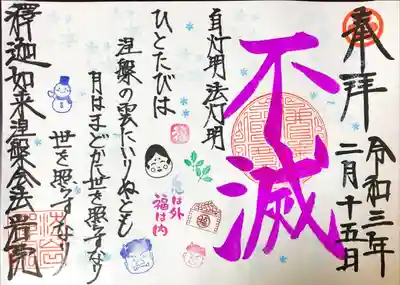 奉拝
令和三年
二月十五日
不滅
自灯明法灯明
ひとたびは
涅槃の雲にいりぬとも
月はまどかに世を照すなり
世を照すなり
釋迦如来涅槃会
福
鬼は外
福は内